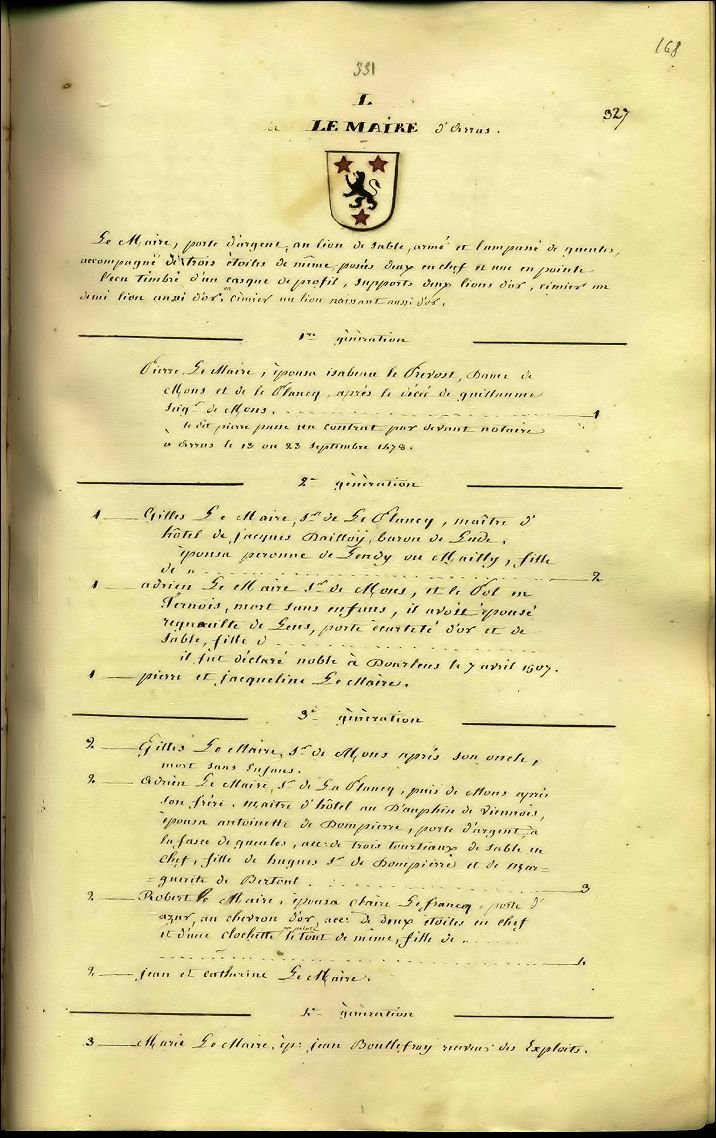 168
331
L
327
LE MAIRE d'Arras.
Le Maire, porte d'argent, au lion de sable, armé et lampassé de gueules,
accompagné de trois étoiles de même, posées deux en chef et une en pointe
l'ecu timbré d'un casque de profil, supports deux lions d'or, cimier un
demi lion aussi d'or. ou cimier un lion naissant aussi d'or.
1re génération
Pierre Le Maire, épousa isabeau le Prevost, Dame de
Mons et de le Plancq, après le décé de guillaume
seigr de Mons. 1
le dit pierre passe un contrat par devant notaire
a Arras le 13 ou 23 septembre 1478.
2e génération
1 Gilles Le Maire, Sr de Le Plancq, maître d'
hôtel de jacques Dailloÿ, baron de Lude.
épousa peronne de Lendy ou Mailly, fille
de " 2
1 adrien Le Maire Sr de Mons, et le Pol en
Pernois, mort sans enfans, il avoit épousé
de Lens, porte écartelé d'or et de
sable, fille d
il fut déclaré noble à Dourlens le 7 avril 1507.
1 pierre et jacqueline Le Maire.
3e génération
2 Gilles Le Maire, Sr de Mons après son oncle,
mort sans Enfans.
2 Adrien Le Maire, Sr de La Plancq, puis de Mons après
son frére. maitre d'hôtel au Dauphin de Viennois,
épousa antoinette de Dompierre, porte d'argent, a
la fasce de gueules, acc: de trois tourtiaux de sable en
chef, fille de hugues Sr de Dompierre et de mar=
=guerite de Bertoul. 3
2 Robert le Maire, épousa claire Lefrancq, porte d'
azur, au chevron d'or, acc: de deux étoiles en chef
et d'une clochette en pointe le tout de même, fille de
4
2 jean et catherine Le Maire.
4e génération
3 Marie Le Maire, ép: jean Boullefroy receveur des Exploits.